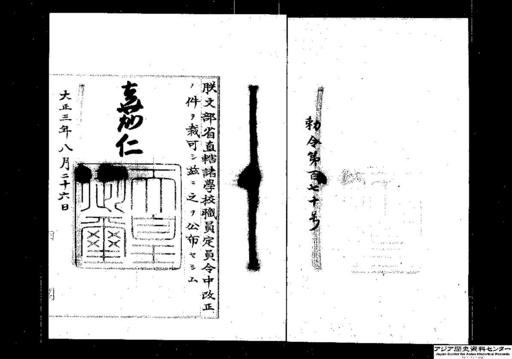 勅令第百七十号
朕文部省直轄諸学校職員定員令中改正
ノ件ヲ裁可シ茲ニ之ヲ公布セシム
嘉仁
天皇御璽
大正三年八月二十六日
アジア歴史資料センター
Japan Center for Asian Historical Records